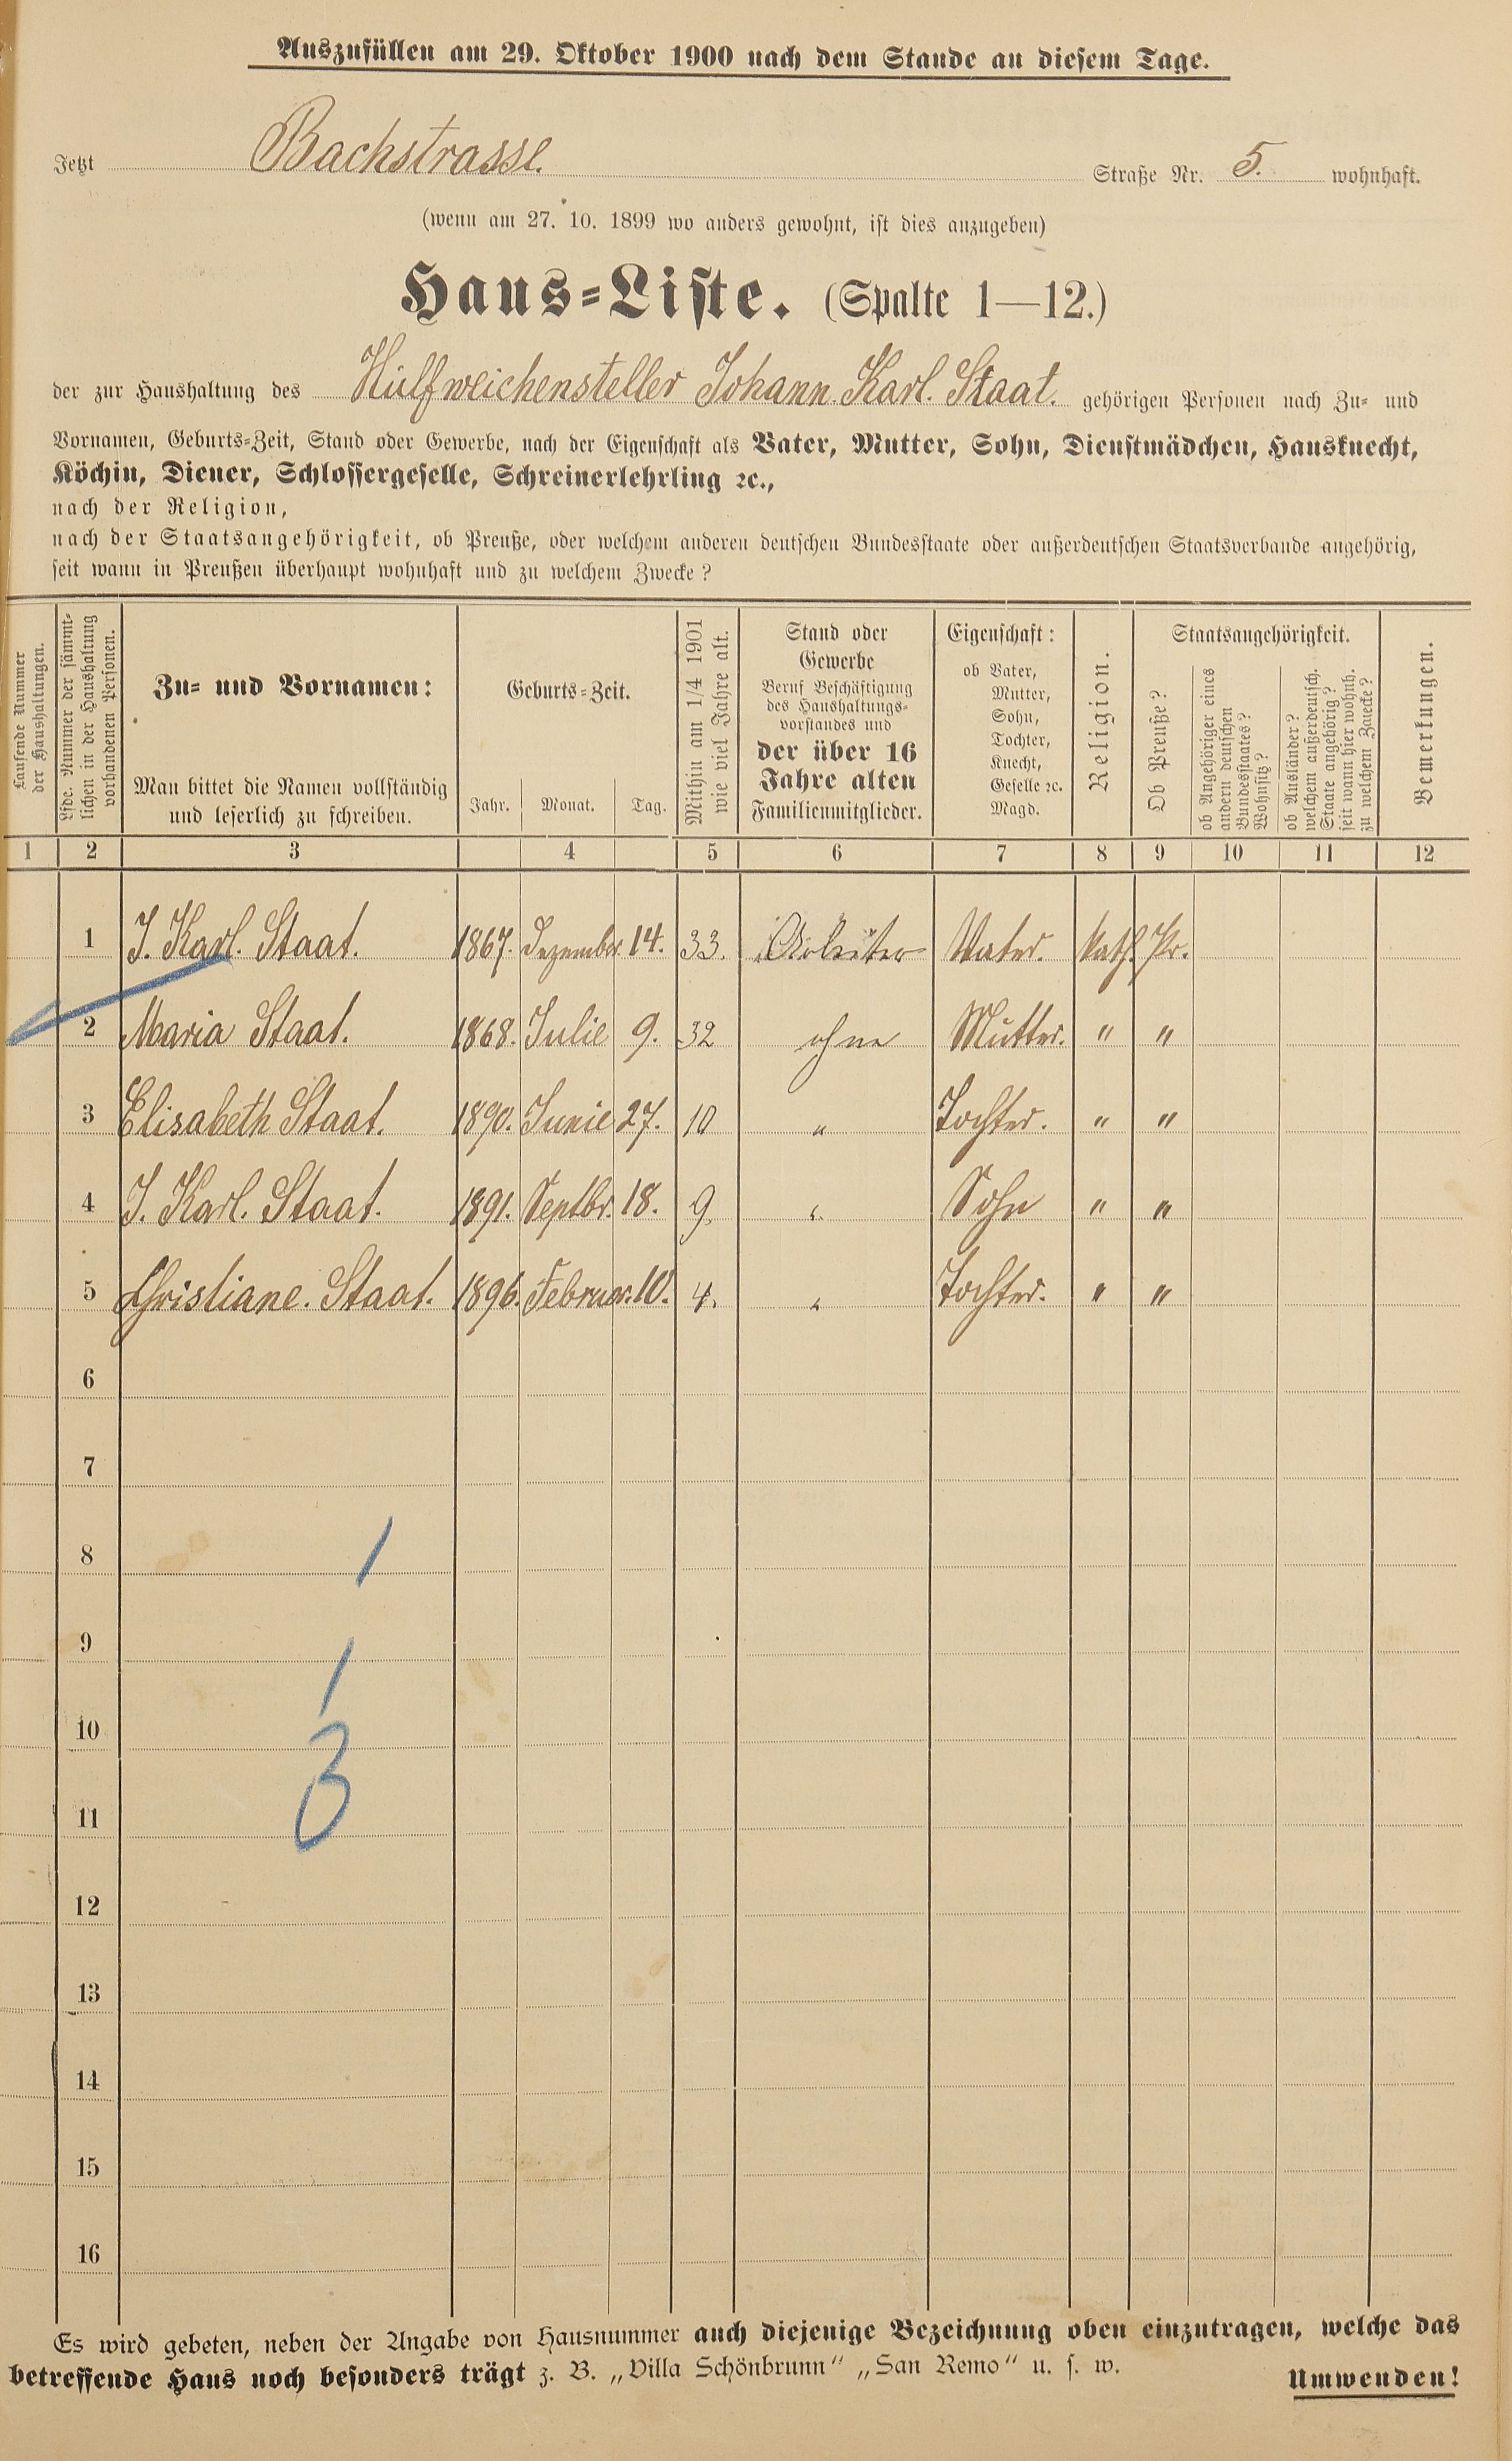 Auszufüllen am 29. Oktober 1900 nach dem Stande an diesem Tage.
Jetzt Bachstrasse. Straße Nr. 5. wohnhaft.
(wenn am 27. 10. 1899 wo anders gewohnt, ist dies anzugeben)
Haus-Liste. (Spalte 1—12.)
der zur Haushaltung des Hülfweichensteller Johann. Karl. Staat. gehörigen Personen nach Zu- und
Vornamen, Geburts-Zeit, Stand oder Gewerbe, nach der Eigenschaft als Vater, Mutter, Sohn, Dienstmädchen, Hausknecht,
Köchin, Diener, Schlossergeselle, Schreinerlehrling ꝛc.,
nach der Religion,
nach der Staatsangehörigkeit, ob Preuße, oder welchem anderen deutschen Bundesstaate oder außerdeutschen Staatsverbande angehörig,
seit wann in Preußen überhaupt wohnhaft und zu welchem Zwecke?
Laufende Nummer
der Haushaltungen.
Lfde. Nummer der sämmt-
lichen in der Haushaltung
vorhandenen Personen.
Zu- und Vornamen:
Man bittet die Namen vollständig
und leserlich zu schreiben.
Geburts-Zeit.
Jahr. Monat. Tag.
Mithin am 1/4 1901
wie viel Jahre alt.
Stand oder
Gewerbe
Beruf Beschäftigung
des Haushaltungs-
vorstandes und
der über 16
Jahre alten
Familienmitglieder.
Eigenschaft:
ob Vater,
Mutter,
Sohn,
Tochter,
Knecht,
Geselle ꝛc.
Magd.
Religion.
Staatsangehörigkeit.
Ob Preuße?
ob Angehöriger eines
andern deutschen
Bundesstaates?
Wohnsitz?
ob Ausländer?
welchem außerdeutsch.
Staate angehörig?
seit wann hier wohnh.
zu welchem Zwecke?
Bemerkungen.
1 2 3 4 5 6 7 8 9 10 11 12
1 J. Karl. Staat. 1867. Dezember. 14. 33. Arbeiter Vater. Kath. Pr.
2 Maria Staat. 1868. Julie 9. 32 ohne Mutter. " "
3 Elisabeth Staat. 1890. Junie 27. 10 " Tochter. " "
4 J. Karl. Staat. 1891. Septbr. 18. 9. " Sohn " "
5 Christiane. Staat. 1896. Februar. 10. 4. " Tochter. " "
6
7
8 1
9 1
10
3
11
12
13
14
15
16
Es wird gebeten, neben der Angabe von Hausnummer auch diejenige Bezeichnung oben einzutragen, welche das
betreffende Haus noch besonders trägt z. B. „Villa Schönbrunn" „San Remo" u. s. w. Umwenden!